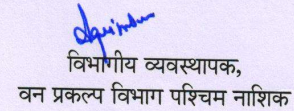 विभागीय व्यवस्थापक,
वन प्रकल्प विभाग पश्चिम नाशिक